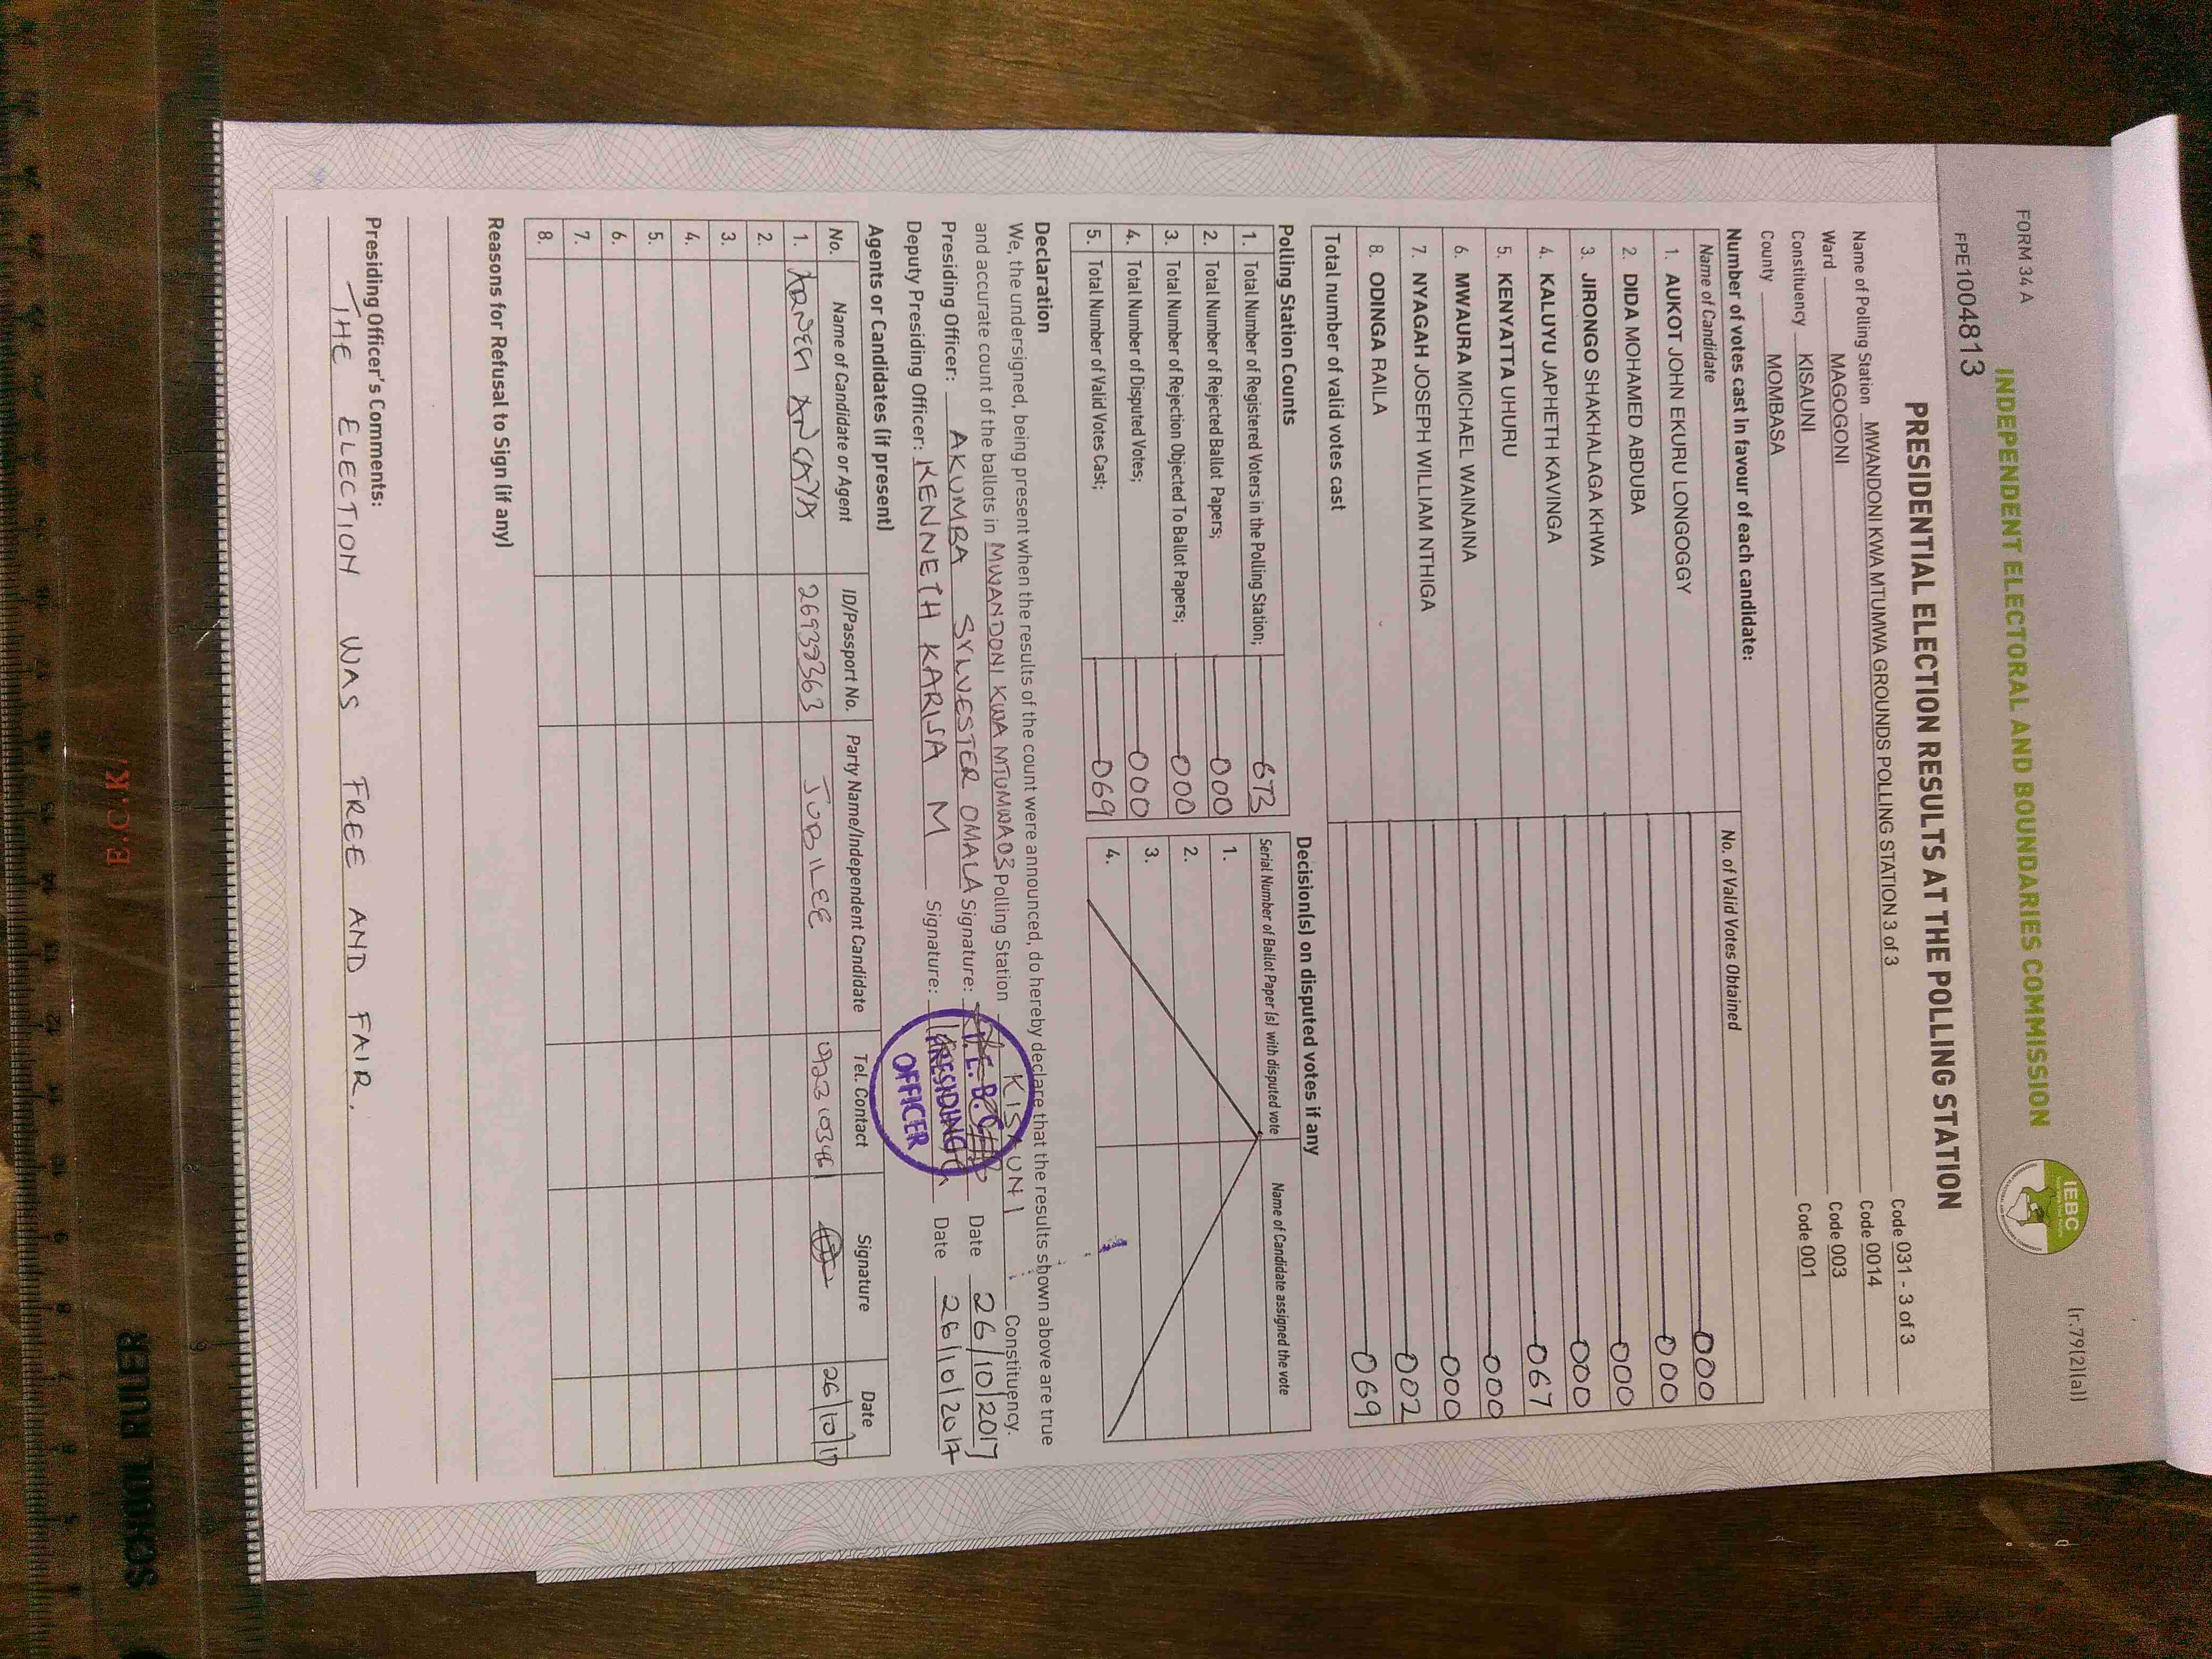 FORM 34 A
(r.79(2)(a))
INDEPENDENT ELECTORAL AND BOUNDARIES COMMISSION
IEBC
FPE1004813
PRESIDENTIAL ELECTION RESULTS AT THE POLLING STATION
Name of Polling Station MWANDONI KWA MTUMWA GROUNDS POLLING STATION 3 of 3 Code 031 - 3 of 3
Ward MAGOGONI Code 0014
Constituency KISAUNI Code 003
County MOMBASA Code 001
Number of votes cast in favour of each candidate:
Name of Candidate No. of Valid Votes Obtained
1. AUKOT JOHN EKURU LONGOGGY 000
2. DIDA MOHAMED ABDUBA 000
3. JIRONGO SHAKHALAGA KHWA 000
4. KALUYU JAPHETH KAVINGA 000
5. KENYATTA UHURU 067
6. MWAURA MICHAEL WAINAINA 000
7. NYAGAH JOSEPH WILLIAM NTHIGA 000
8. ODINGA RAILA 002
Total number of valid votes cast 069
Polling Station Counts
1. Total Number of Registered Voters in the Polling Station; 673
2. Total Number of Rejected Ballot Papers; 000
3. Total Number of Rejection Objected To Ballot Papers; 000
4. Total Number of Disputed Votes; 000
5. Total Number of Valid Votes Cast; 069
Decision(s) on disputed votes if any
Serial Number of Ballot Paper (s) with disputed vote Name of Candidate assigned the vote
1.
2.
3.
4.
Declaration
We, the undersigned, being present when the results of the count were announced, do hereby declare that the results shown above are true
and accurate count of the ballots in MWANDONI KWA MTUMWA 03 Polling Station KISAUNI Constituency.
Presiding Officer: AKUMBA SYLVESTER OMALA Signature: Date 26/10/2017
Deputy Presiding Officer: KENNETH KARISA M Signature: Date 26/10/2017
I.E.B.C
PRESIDING
OFFICER
Agents or Candidates (if present)
No. Name of Candidate or Agent ID/Passport No. Party Name/Independent Candidate Tel. Contact Signature Date
1. 26938363 JUBILEE 26/10/17
2.
3.
4.
5.
6.
7.
8.
Reasons for Refusal to Sign (if any)
Presiding Officer's Comments:
THE ELECTION WAS FREE AND FAIR.